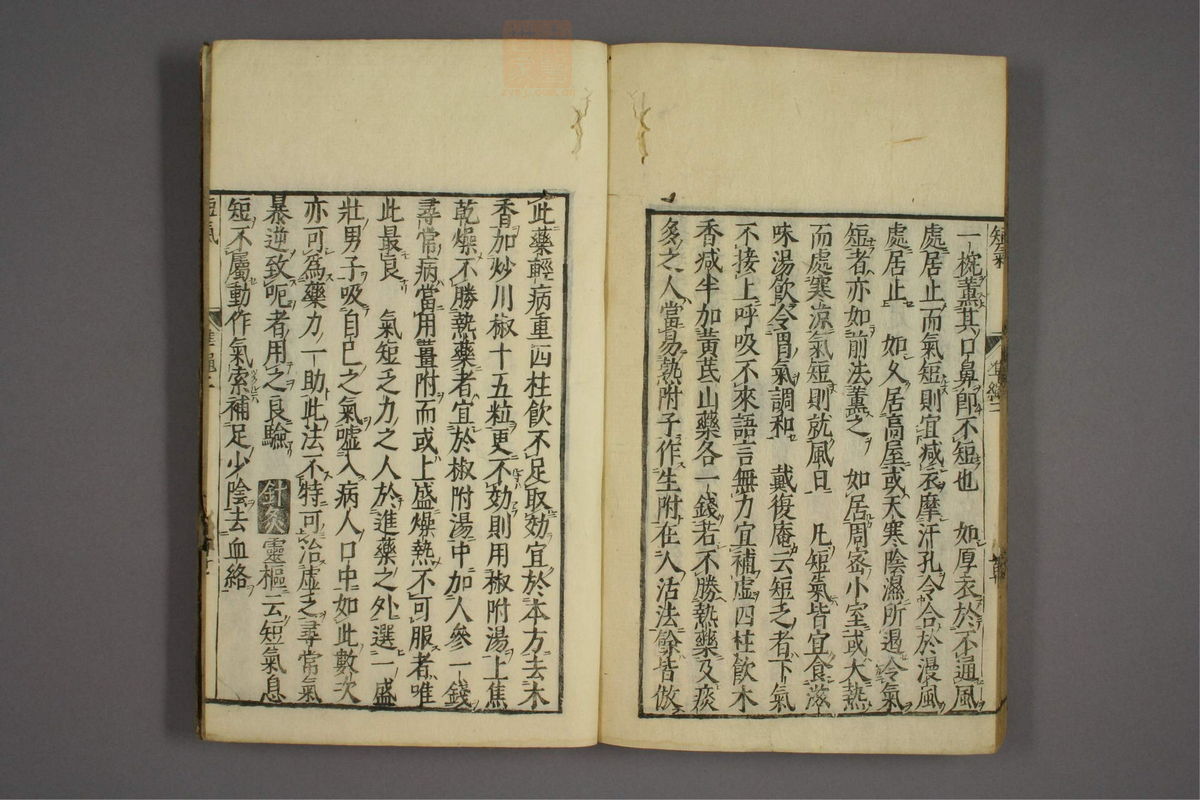 短氣
一椀薰其口鼻即不短也　如厚衣於不通風
處居止而氣短則宜减衣摩汗孔令合於漫風
處居止　如久居高屋或天寒陰濕所遏令氣
短者亦如前法薰之　如居周密小室或大熱
而處寒凉氣短則就風日　凡短氣皆宜食滋
味湯飲令胃氣調和　戴復庵云短乏者下氣
不接上呼吸不來語言無力宜補虛四柱飲木
香减半加黃茋山藥各一錢若不勝熱藥及痰
多之人當易熟附子作生附在人活法餘皆倣
此藥輕病重四柱飲不足取効宜於本方去木
香加炒川椒十五粒更不効則用椒附湯上焦
乾燥不勝熱藥者宜於椒附湯中加人參一錢
尋常病當用薑附而或上盛燥熱不可服者唯
此最良　氣短乏力之人於進藥之外選一盛
壯男子吸自己之氣噓入病人口中如此數次
亦可爲藥力一助此法不特可治虛乏尋常氣
暴逆致呃者用之良驗　針灸　靈樞云短氣息
短不屬動作氣索補足少陰去血絡
短氣